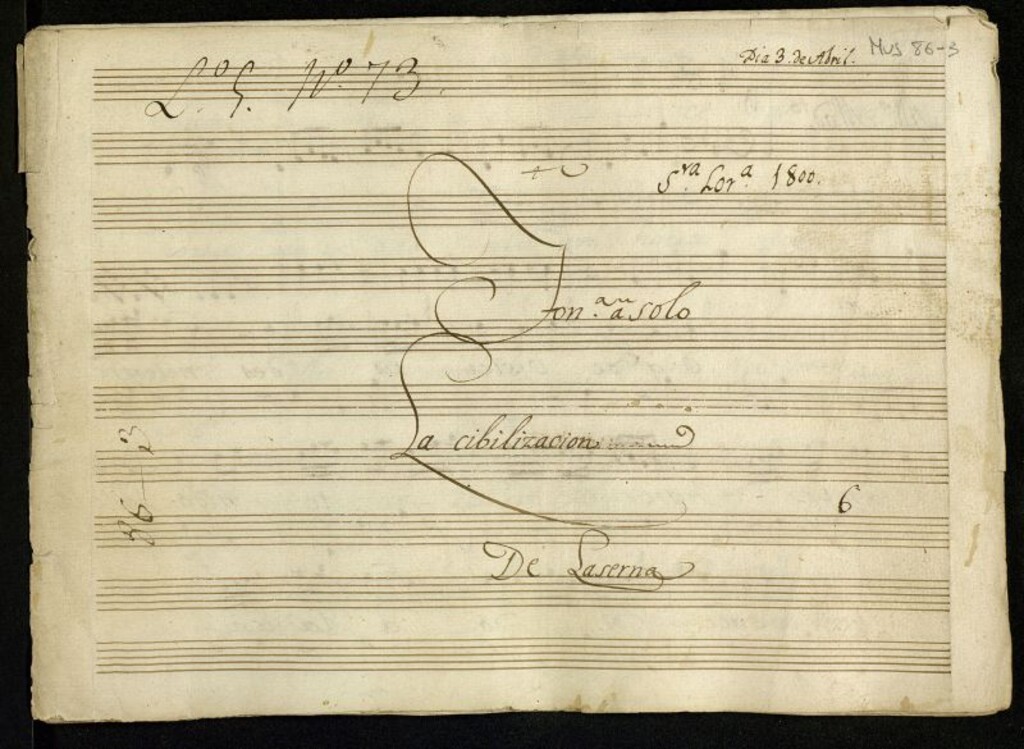 Mus 86-3
Dia 3. de Abril.
L.º 5. Nº. 73.
S.ra Lor.a 1800.
Ton.a a solo
La cibilizacion
6
86-3
De Laserna